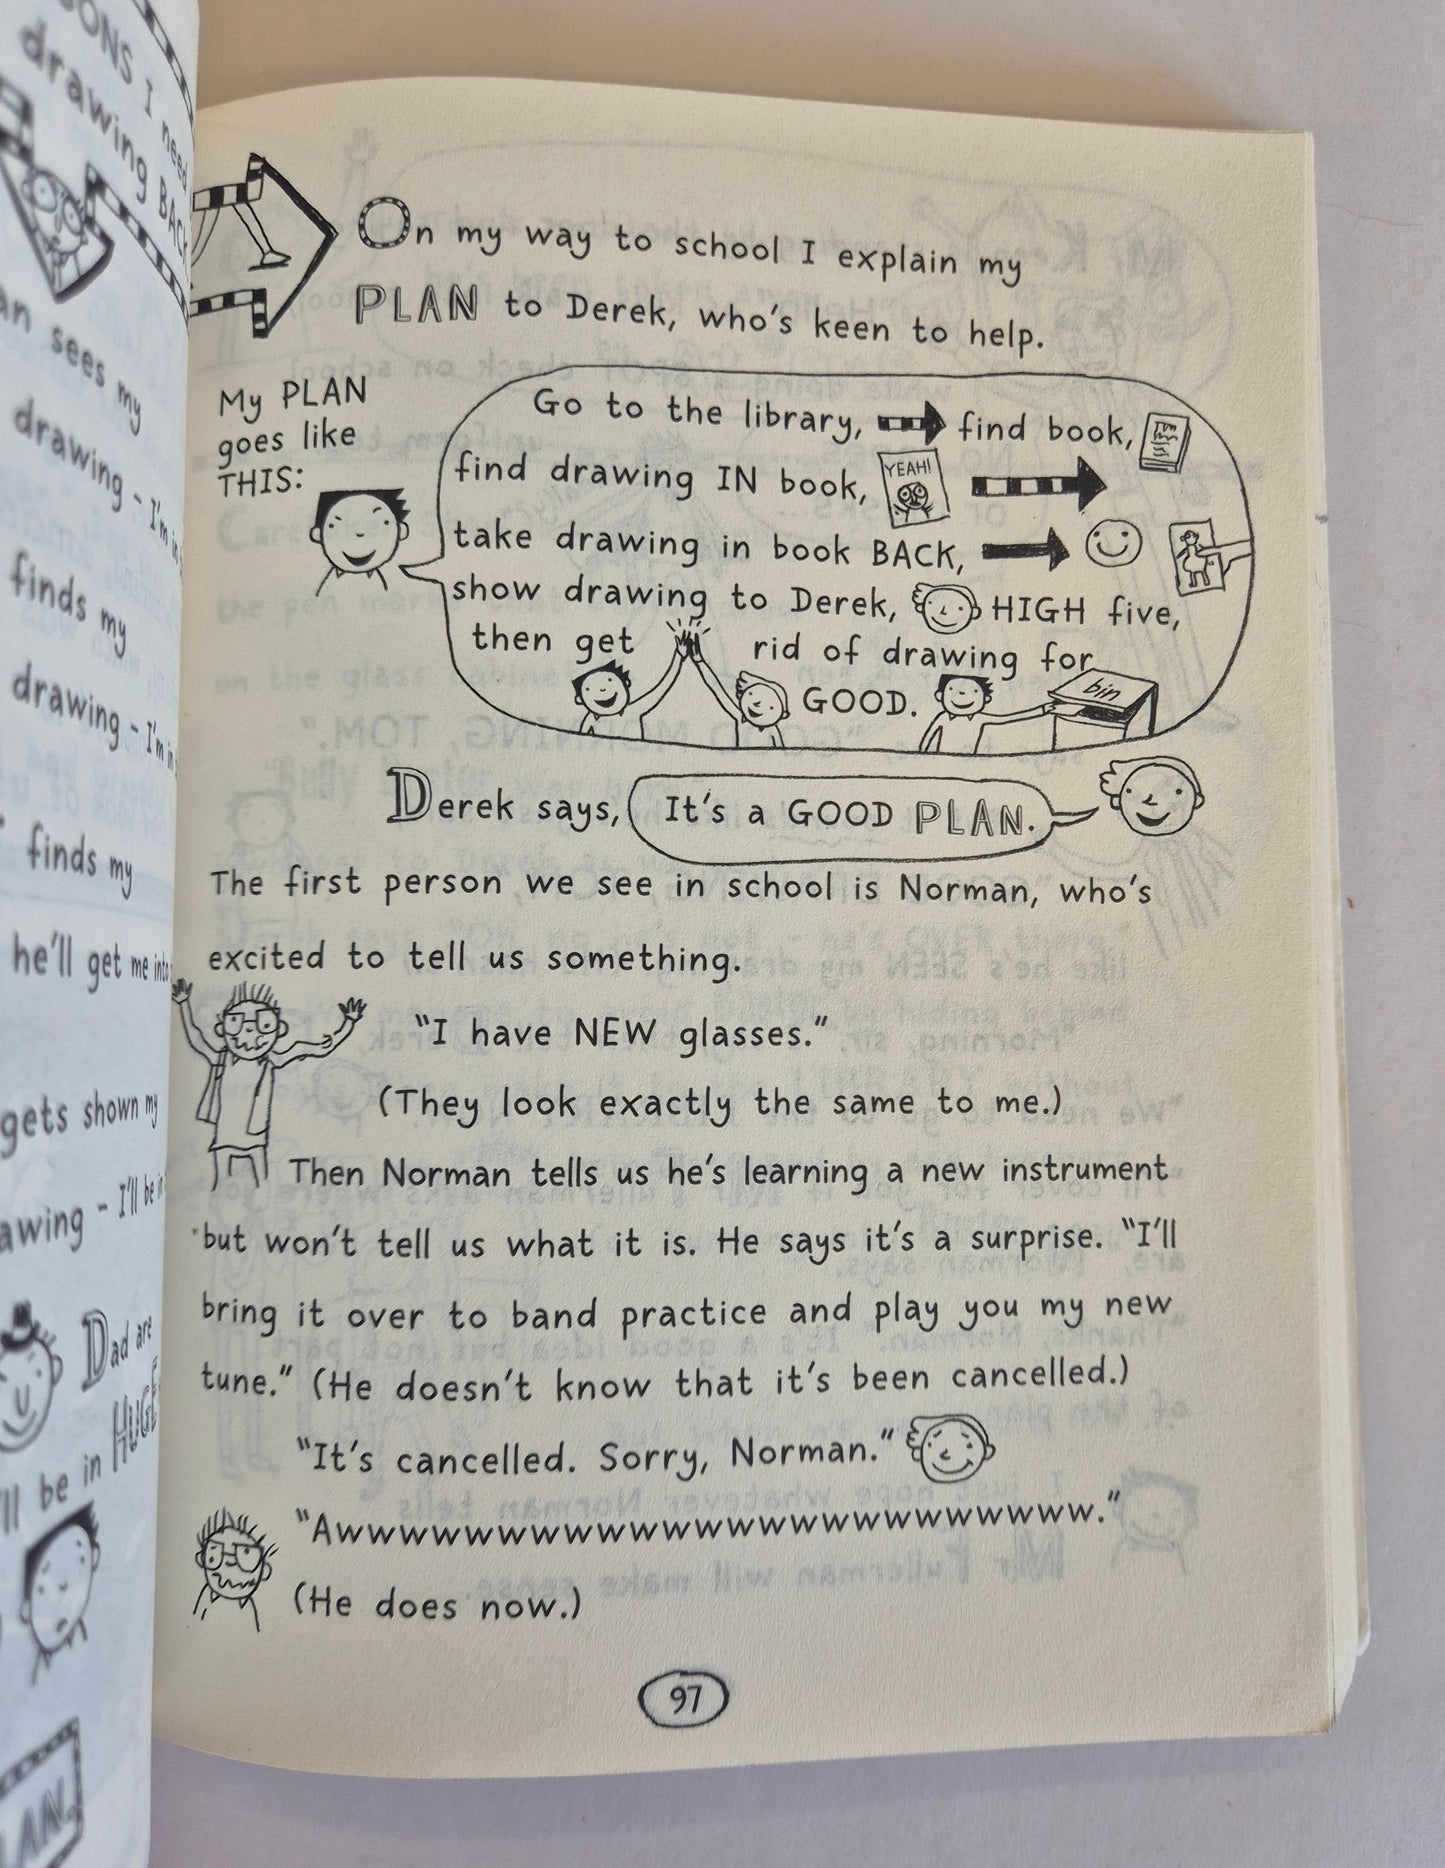 SONS I need
drawing BACK
an sees my
drawing - I'm in
finds my
drawing - I'm in
finds my
he'll get me into
gets shown my
awing - I'll be in
Dad are
HUGE
'll be in
LAN.
On my way to school I explain my
PLAN to Derek, who's keen to help.
My PLAN
goes like
THIS:
Go to the library, find book,
find drawing IN book, YEAH!
take drawing in book BACK,
show drawing to Derek, HIGH five,
then get rid of drawing for
GOOD. bin
Derek says, It's a GOOD PLAN.
The first person we see in school is Norman, who's
excited to tell us something.
"I have NEW glasses."
(They look exactly the same to me.)
Then Norman tells us he's learning a new instrument
but won't tell us what it is. He says it's a surprise. "I'll
bring it over to band practice and play you my new
tune." (He doesn't know that it's been cancelled.)
"It's cancelled. Sorry, Norman."
"Awwwwwwwwwwwwwwwwwwwwwwww."
(He does now.)
97